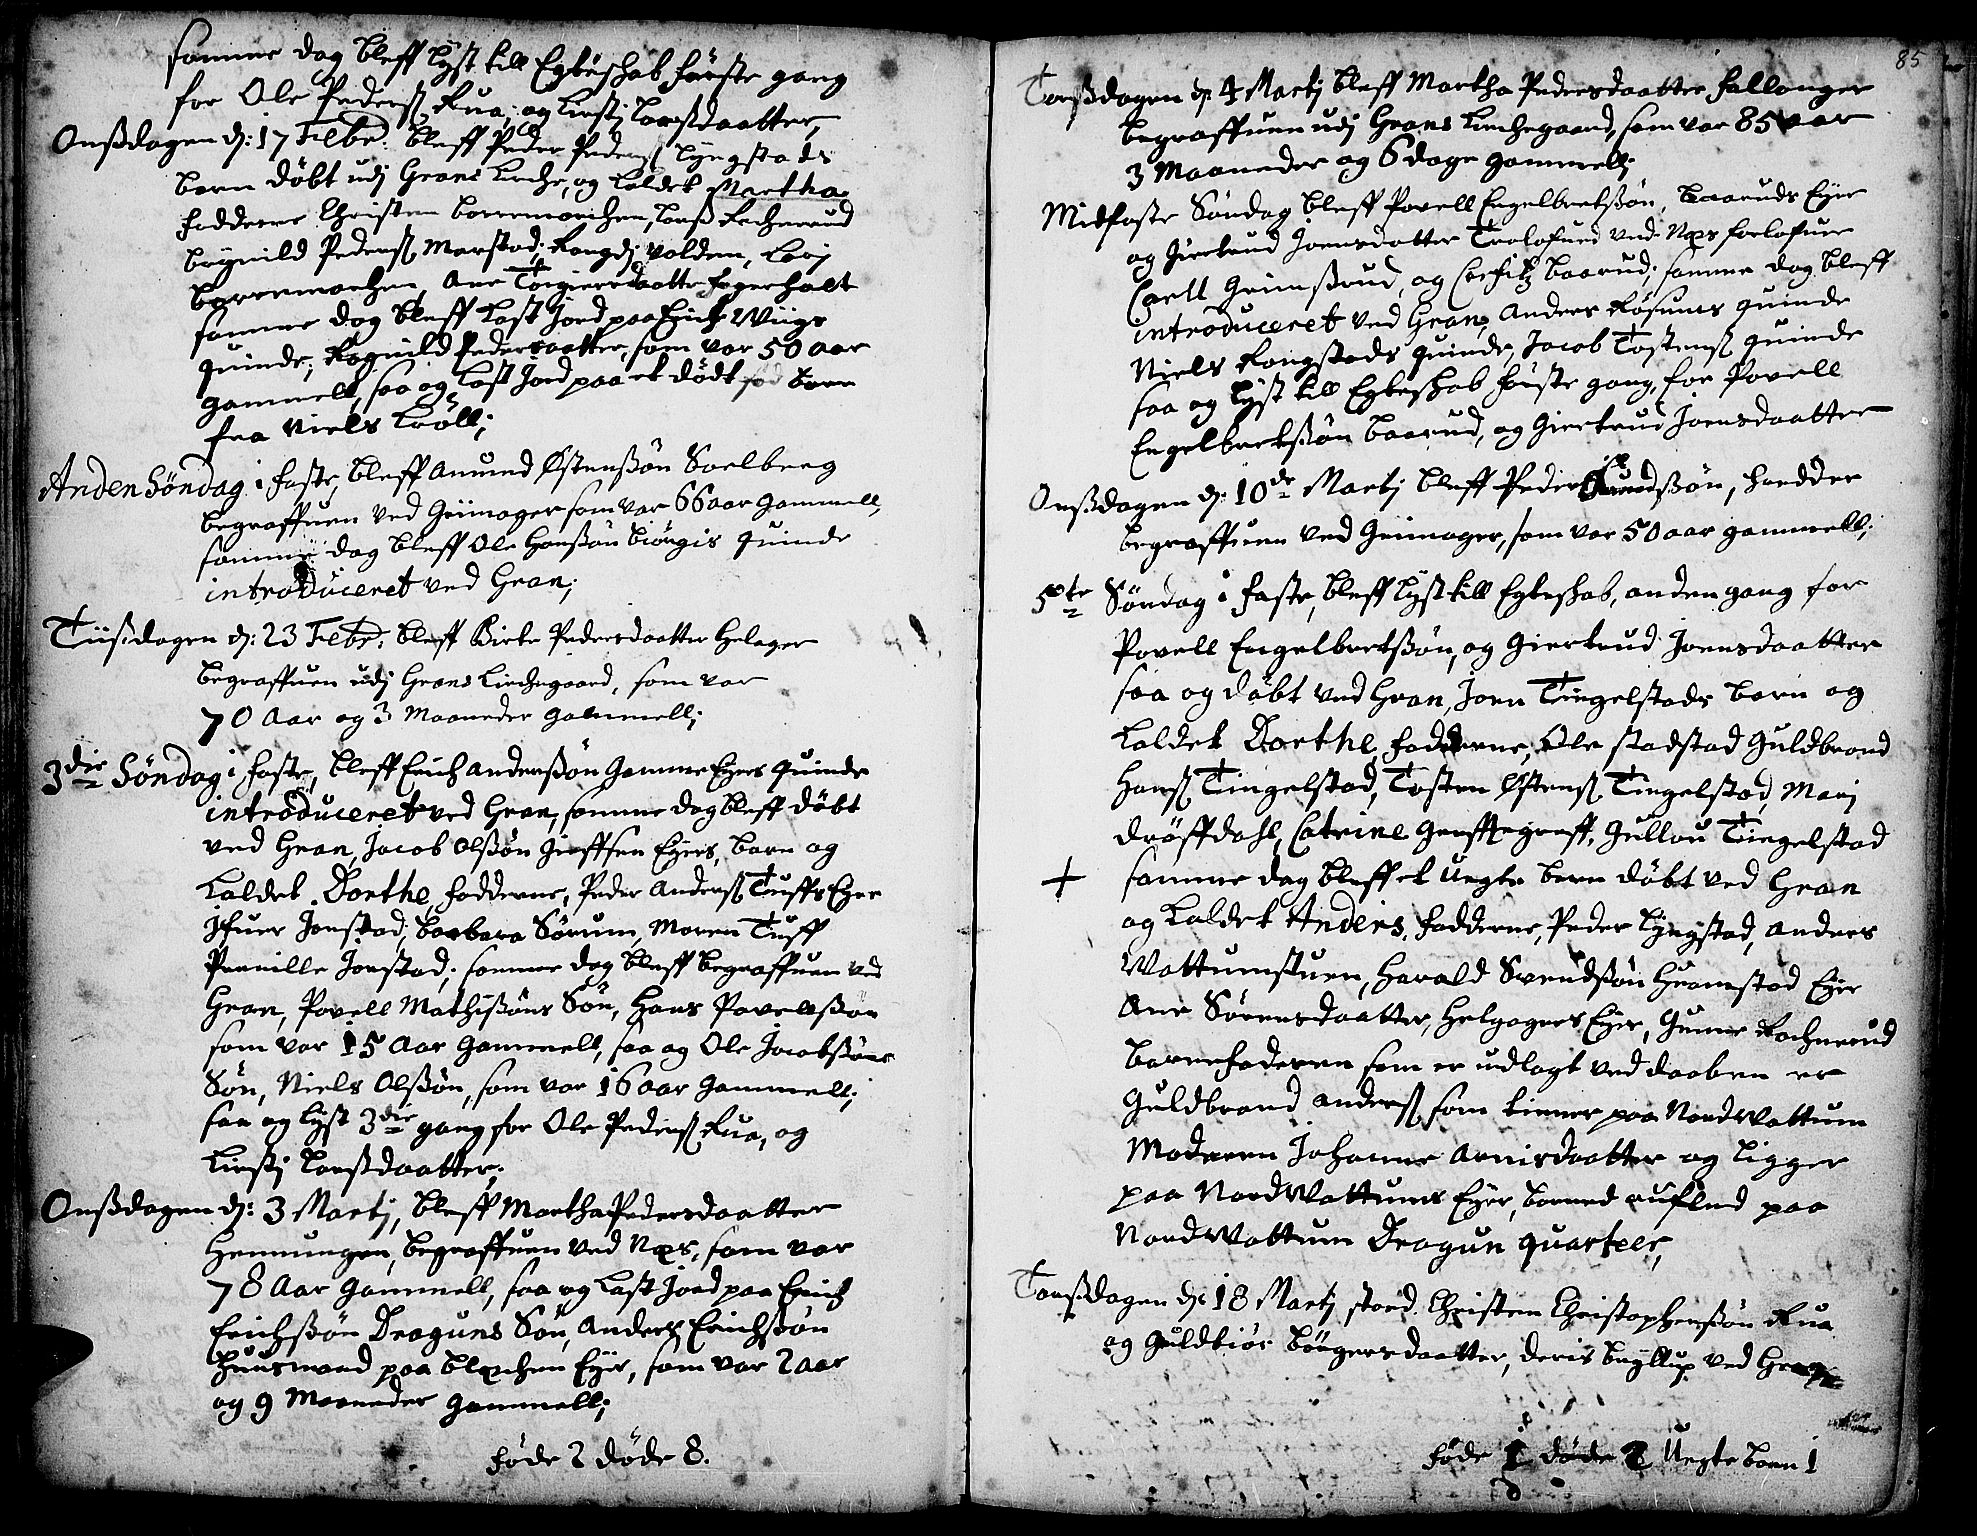 samme dag bleff lyst till Egteschab første gang
for Ole Peders: Rua, og Kirstj Larsdaatter,
Onsdagen d: 17 Febr: bleff Peder Peders: Lyngstads
barn döbt udj Grans Kirche, og kaldet Martha
fadderne Christen Larss
Peders: Marstad, volden, Karj
Ane
samme dag bleff kast jord paa Erich Wiigs
quinde, Ragnild Pedersdaatter, som var 50 aar
gammell, saa og kast jord paa et dödt fød barn
fra Niels Kröll;
Anden Söndag i faste, bleff Amund Østensön Soelberg
begraffuen ved Grimager som var 66 aar gammell,
samme dag bleff Ole Hansön quinde
introduceret ved Gran;
Tiisdagen d: 23 Febr: bleff Birte Pedersdaatter Helager
begraffuen udj Grans Kirchegaard, som var
70 Aar og 3 Maaneder gammell;
3die Söndag i faste, bleff Erich Andersön Gamme Eyers quinde
introduceret ved Gran, samme dag bleff döbt
ved Gran, Jacob Olssön Eyers, barn og
kaldet Dorthe, fadderne, Peder Anders: Tuffs Eyer
Ifuer Jonstad, Barbara Sörum, Maren Tuff
Pernille Jonstad; samme dag bleff begraffuen ved
Gran, Povell Mathissöns Sön, Hans Povelssön
som var 15 Aar gammell, saa og Ole Jacobssöns
Sön, Niels Olssön, som var 16 aar gammell;
saa og lyst 3die gang for Ole Peders: Rua, og
Kirstj Larsdaatter;
Onssdagen d: 3 Martj, bleff Martha Pedersdaatter
Hennungen, begraffuen ved Næs, som var
78 Aar gammell, saa og kast jord paa Erich
Erichssön Draguns Sön, Anders Erichssön
huusmand paa Eyer, som var 2 aar
og 9 Maaneder gammell;
föde 2 döde 8.
85
Torssdagen d: 4 Martj bleff Martha Pedersdaatter Hallanger
begraffuen udj Grans Kirchegaard, som var 85 aar
3 Maaneder og 6 dage gammell;
Midfaste Söndag bleff Povell Engelbretssön, Baaruds Eyer
og Giertrud Joensdaatter Trolofued ved Næs forlofuere
Carll Grimssrud, og Baarud; samme dag bleff
introduceret ved Gran, Anders Rössums quinde
Niels Rongstads quinde, Jacob Tostens: quinde
saa og lyst till Egteschab förste gang, for Povell
Engelbretssön Baarud, og Giertrud Joensdaatter
Onssdagen d: 10de Martj bleff Peder
begraffuen ved Grimager, som var 50 aar gammell;
5te Söndag i faste, bleff lyst till Egteschab, anden gang for
Povell Engelbretssön, og Giertrud Joensdaatter
saa og döbt ved Gran, Joen Tingelstads barn og
kaldet Dorthe, fadderne, Ole stadstad Guldbrand
Hans: Tingelstad, Tosten Østens: Tingelstad, Marj
Dröffdahl, Catrine Gullou Tingelstad
+ samme dag bleff et Uegte barn döbt ved Gran
og kaldet Anders, fadderne, Peder Lyngstad, Anders
Wattumstuen, Harald Svendssön Hramstad Eyer
Ane Sörensdaatter, Helgagers Eyer, Gunnor Rachnerud
barnefaderen som er udlagt ved daaben er
Guldbrand Anders: som tienner paa Nordwattum
Moderen Johanne Arnisdaatter og ligger
paa Nordwattums Eyer, barned auflend paa
Nordwattum Dragun quarteer,
Torssdagen d: 18 Martj stoed Christen Christophersön Rua
og Guldbiör Börgersdaatter, deris bryllup ved Gran
föde 1 döde 2 Uegte barn 1